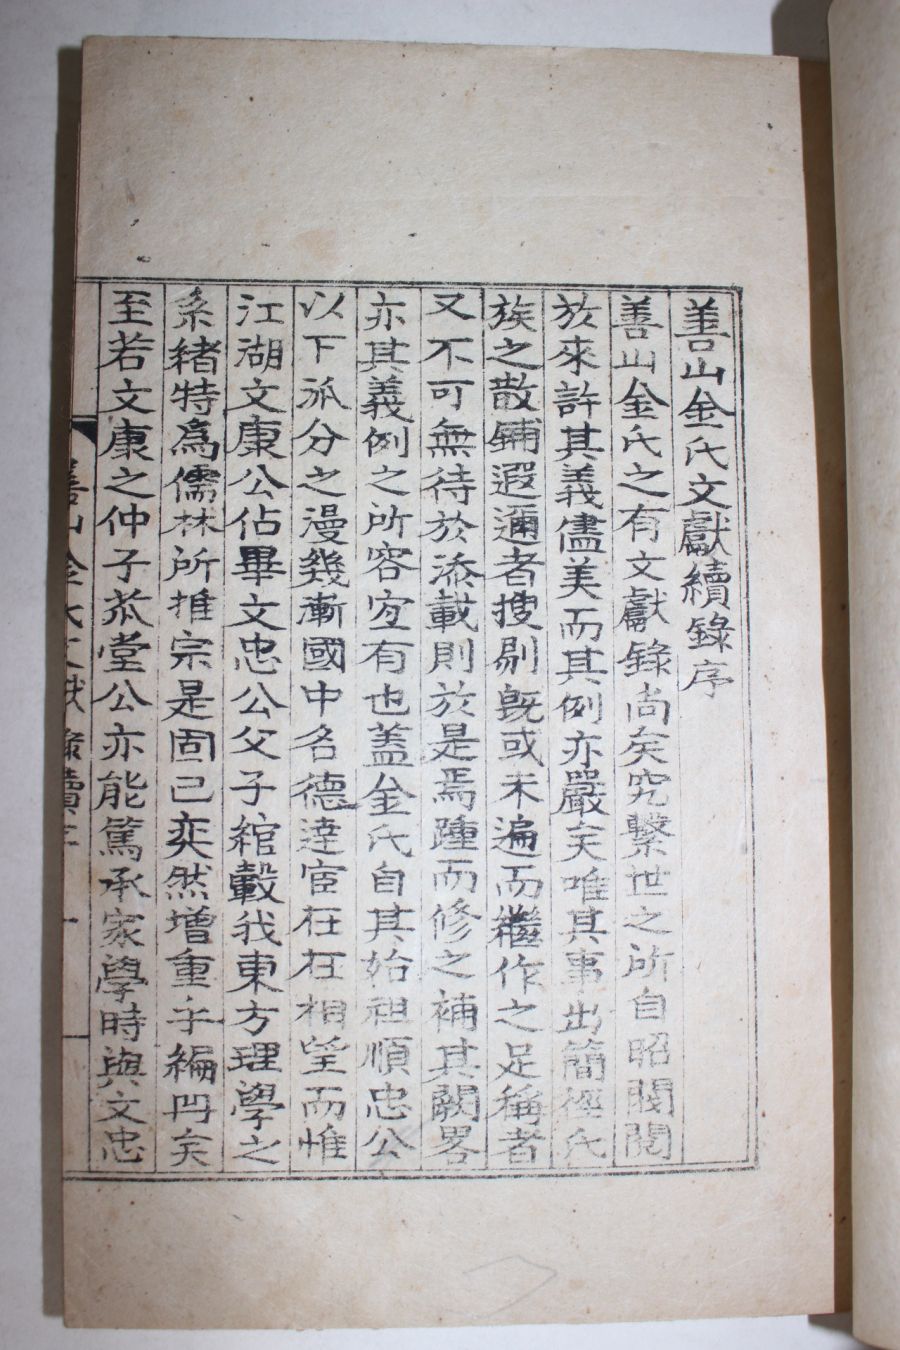 善山金氏文獻續錄序
善山金氏之有文獻錄尚矣究繫世之所自昭閥閱
於來許其義儘美而其例亦嚴矣唯其事出簡極氏
族之散鋪遐邇者搜剔旣或未遍而繼作之足稱者
又不可無待於添載則於是焉踵而修之補其闕畧
亦其義例之所容宐有也盖金氏自其始祖順忠公
以下派分之漫幾漸國中名德達宦在在相望而惟
江湖文康公佔畢文忠公父子綰轂我東方理學之
系緖特爲儒林所推宗是固已奕然增重乎編冊矣
至若文康之仲子菰堂公亦能篤承家學時與文忠
善山金氏文獻錄續序 一